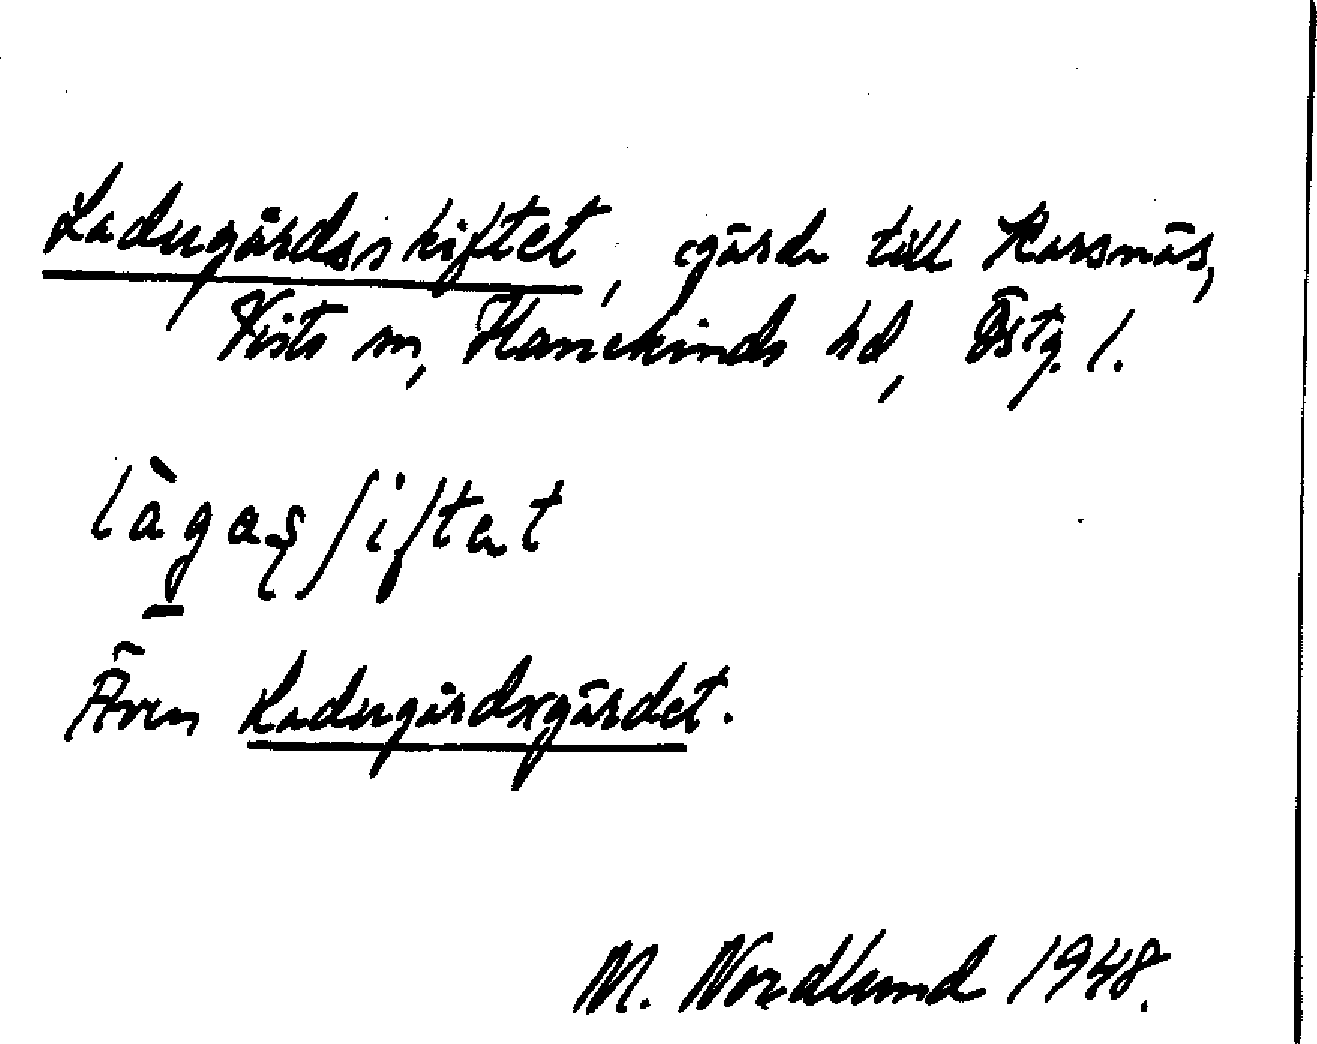 Ladugårdsskiftet, gärde till Karsnäs,
Vists sn, Hanekinds hd, Östg. l.
làgaʂʃiftet
Även Ladugårdsgärdet.
M. Nordlund 1948.